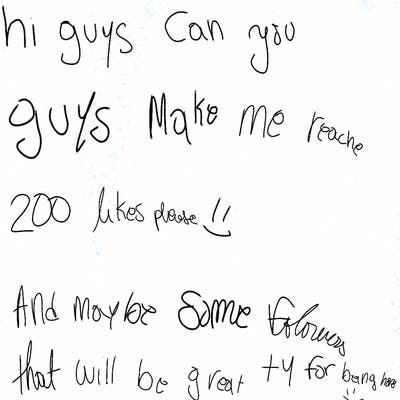 hi guys Can you
guys Make me reache
200 likes please !!
And maybe some folowers
that will be great ty for being here